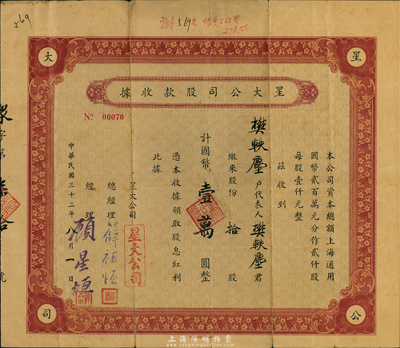 569
星
大
公
司
星大公司股款收據
No 00070
本公司資本總額上海通用
國幣貳百萬元分作貳仟股
每股壹仟元整
茲收到
樊軼塵戶代表人樊軼塵君
繳來股份 拾 股
計國幣 壹萬 圓整
憑本收據領取股息紅利
此據
星大公司
星大公司
總經理
經理 顧星垣
中華民國三十二年八月一日
字第
號